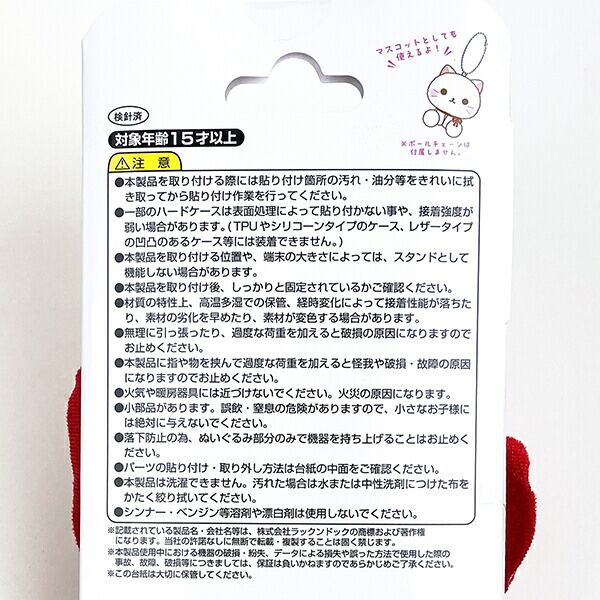 マスコットとしても
使えるよ！
※ボールチェーンは
付属しません。
検針済
対象年齢15才以上
注意
●本製品を取り付ける際には貼り付け箇所の汚れ・油分等をきれいに拭
き取ってから貼り付け作業を行ってください。
●一部のハードケースは表面処理によって貼り付かない事や、接着強度が
弱い場合があります。(TPUやシリコーンタイプのケース、レザータイプ
の凹凸のあるケース等には装着できません。)
●本製品を取り付ける位置や、端末の大きさによっては、スタンドとして
機能しない場合があります。
●本製品を取り付け後、しっかりと固定されているかご確認ください。
●材質の特性上、高温多湿での保管、経時変化によって接着性能が落ちた
り、素材の劣化を早めたり、素材が変色する場合があります。
●無理に引っ張ったり、過度な荷重を加えると破損の原因になりますので
お止めください。
●本製品に指や物を挟んで過度な荷重を加えると怪我や破損・故障の原因
になりますのでお止めください。
●火気や暖房器具には近づけないでください。火災の原因になります。
●小部品があります。誤飲・窒息の危険がありますので、小さなお子様に
は絶対に与えないでください。
●落下防止の為、ぬいぐるみ部分のみで機器を持ち上げることはお止めく
ださい。
●パーツの貼り付け・取り外し方法は台紙の中面をご確認ください。
●本製品は洗濯できません。汚れた場合は水または中性洗剤につけた布を
かたく絞り拭いてください。
●シンナー・ベンジン等溶剤や漂白剤は使用しないでください。
※記載されている製品名・会社名等は、株式会社ラックンドックの商標および著作権
になります。当社の許諾なしに無断で転載・複製することは固く禁じます。
※本製品使用中における機器の破損・紛失、データによる損失や誤った方法で使用した際の
事故、故障、破損等につきましては、保証は負いかねますのであらかじめご了承ください。
※この台紙は大切に保管してください。